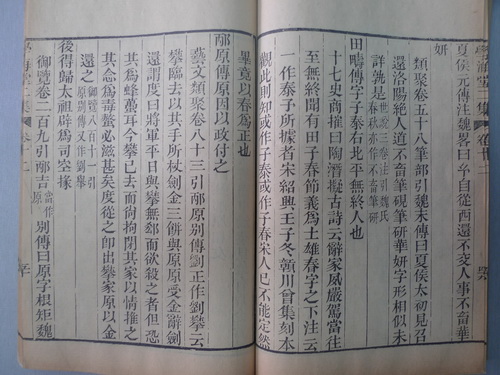 學海堂二集 卷十二
夏侯元傳注魏畧曰元自從西還不交人事不畜華
妍
類聚卷五十八筆部引魏末傳曰夏侯太初見召
還洛陽絶人道不畜筆硯筆研華妍字形相似未
詳就是
田疇傳字子泰右北平無終人也
十七史商榷曰陶潛擬古詩云辭家夙嚴駕當往
至無終聞有田子春節義爲士雄春字之下注云
一作泰子所據者宋紹興壬子冬贛川曾集刻本
觀此則知或作子泰或作子春宋人已不能定然
畢竟以春爲正也
邴原傳原因以政付之
藝文類聚卷八十三引邴原别傳劉正作劉攀云
攀臨去以其手所杖劍金三餅與原原受金辭劍
還謂度曰將軍平日與攀無郤而欲殺之者但恐
其爲蜂蠆耳今攀已去而尚拘閉其家以情推之
其念爲毒螫必滋甚矣度從之卽出攀家原以金
還之 御覽八百十一引
原别傳又作劉舉
後得歸太祖辟爲司空掾
御覽卷二百九引邴吉 當作原 别傳曰原字根矩魏